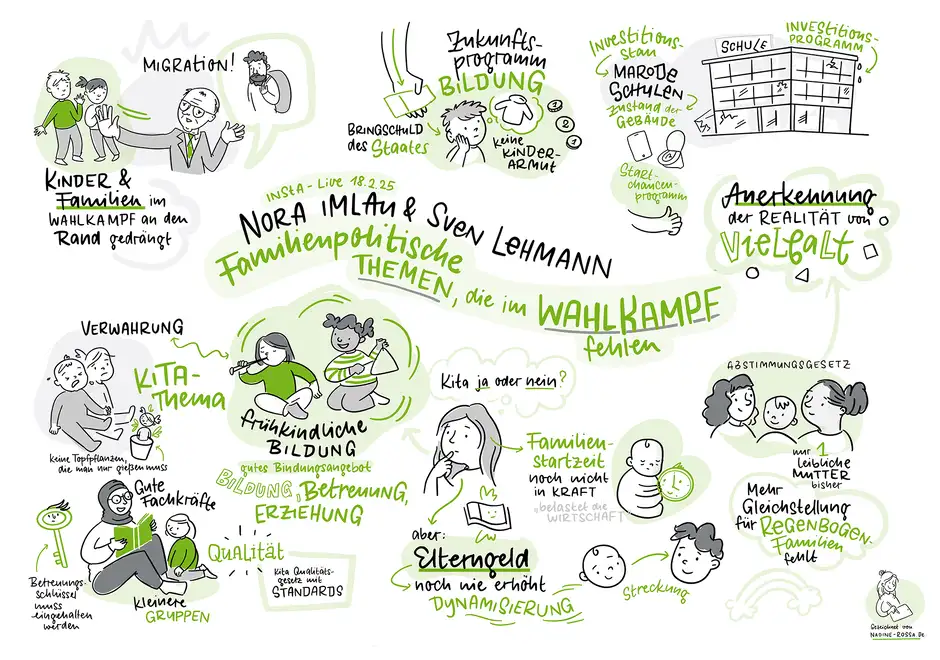 MIGRATION!
KINDER &
Familien im
WAHLKAMPF an den
Rand gedrängt
Zukunfts-
programm
BILDUNG
BRINGSCHULD
des Staates
keine
KINDER-
ARMUT
Investitions-
stau
MARODE
SCHULEN
Zustand der
GEBÄUDE
Start-
chancen-
programm
SCHULE
INVESTITIONS-
PROGRAMM
Anerkennung
der REALITÄT von
Vielfalt
INSTA-Live 18.2.25
NORA IMLAU & SVEN LEHMANN
Familienpolitische
THEMEN, die im WAHLKAMPF
fehlen
VERWAHRUNG
KiTA-
Thema
keine Topfpflanzen,
die man nur gießen muss
frühkindliche
BILDUNG
gutes Bindungsangebot
BILDUNG, Betreuung,
ERZIEHUNG
Gute
Fachkräfte
QUALITÄT
Kita Qualitäts-
gesetz mit
STANDARDS
Betreuungs-
schlüssel
muss
eingehalten
werden
kleinere
GRUPPEN
Kita ja oder nein?
Familien-
startzeit
noch nicht
in KRAFT
"belastet die
WIRTSCHAFT"
aber:
Elterngeld
noch nie erhöht
DYNAMISIERUNG
Streckung
ABSTIMMUNGSGESETZ
nur 1
leibliche
MUTTER
bisher
Mehr
Gleichstellung
für REGENBOGEN-
Familien
fehlt
Gezeichnet von
NADINE-ROSSA.DE